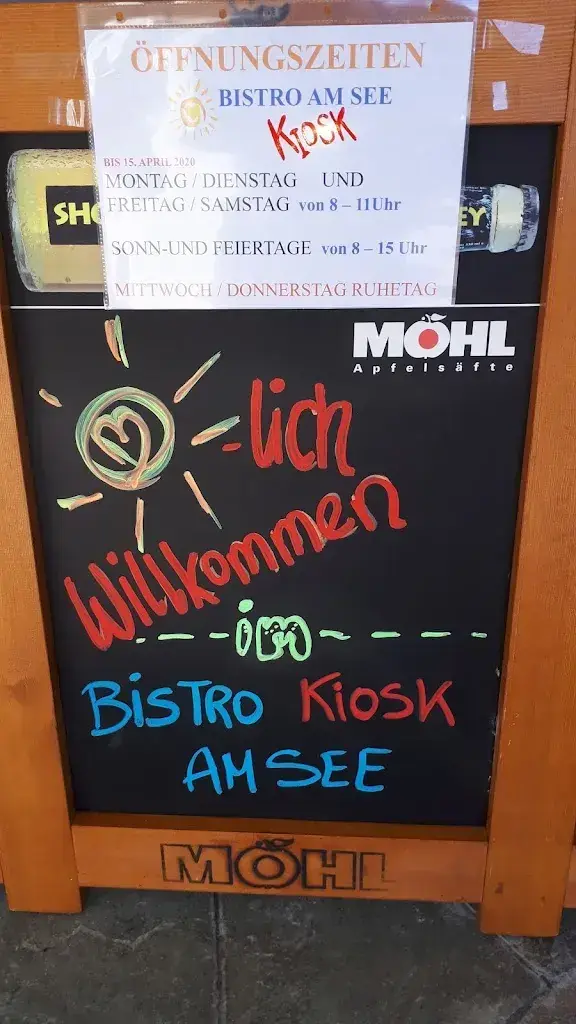 ÖFFNUNGSZEITEN
BISTRO AM SEE
KIOSK
BIS 15. APRIL 2020
MONTAG / DIENSTAG UND
FREITAG / SAMSTAG von 8 – 11Uhr
SONN-UND FEIERTAGE von 8 – 15 Uhr
MITTWOCH / DONNERSTAG RUHETAG
MÖHL
Apfelsäfte
-lich
Willkommen
im
BiSTRO KiOSK
AM SEE
MÖHL